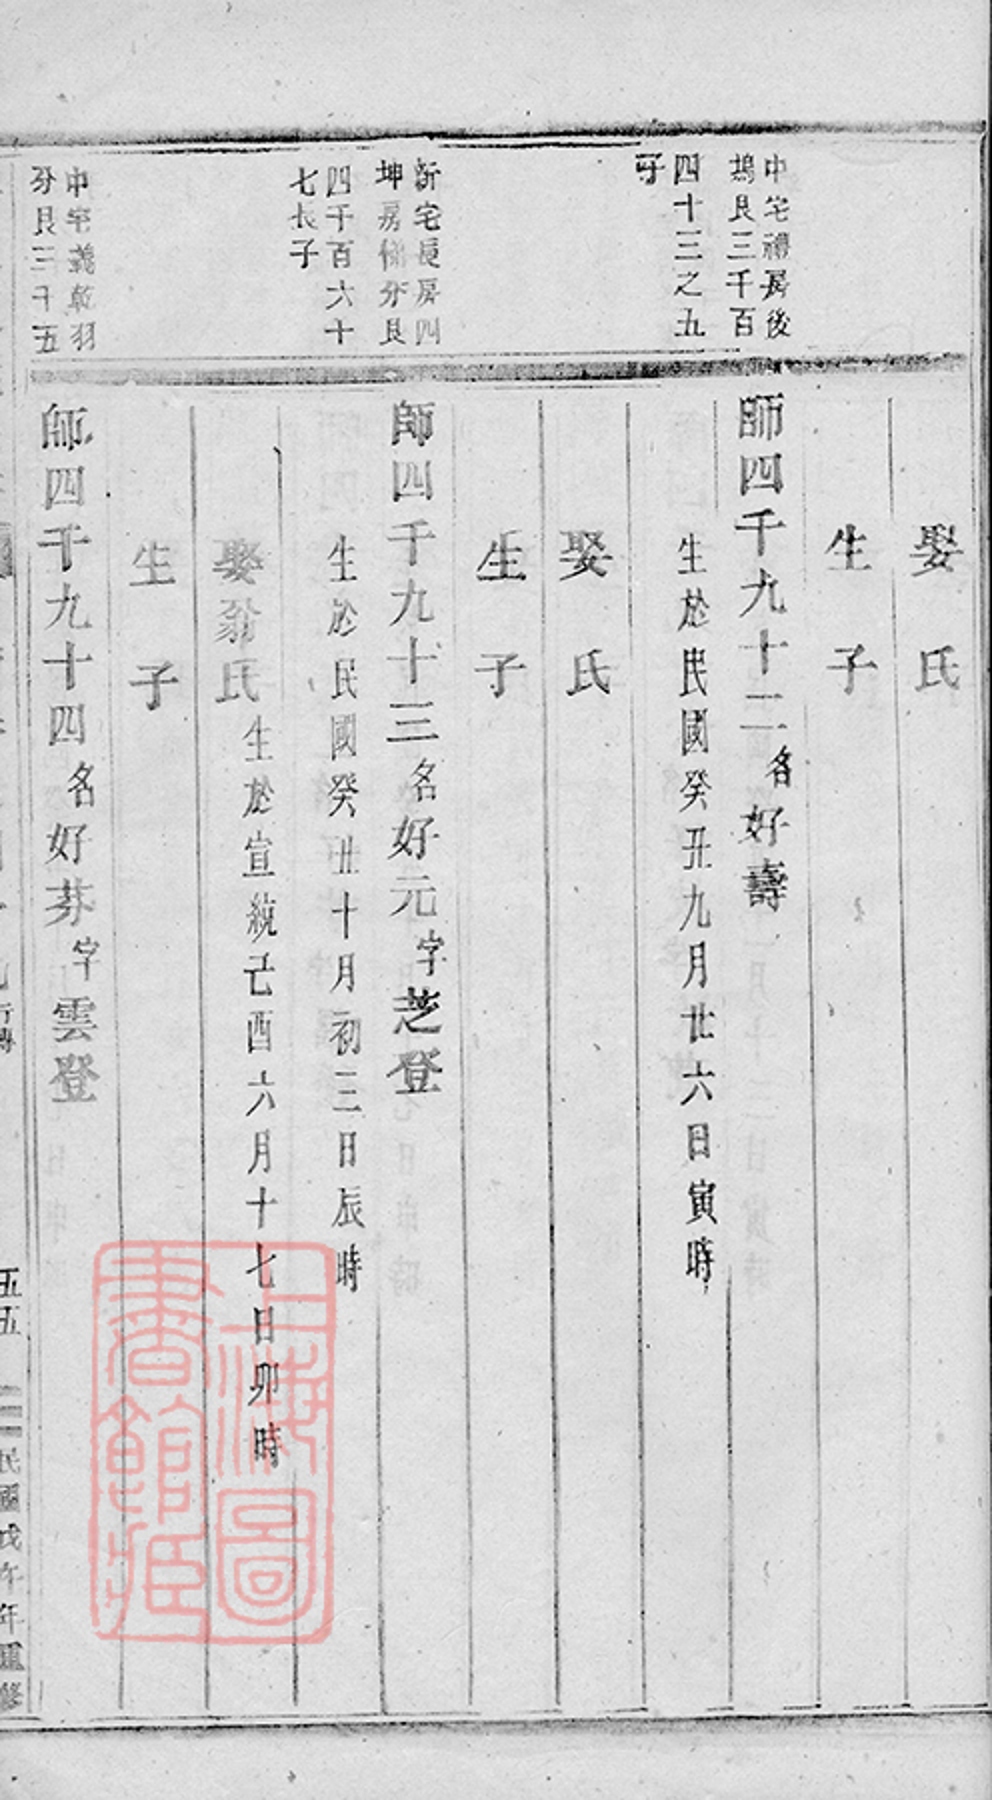 娶　氏
生　子
中宅禮房後
塢艮三千百
四十三之五
子
師四千九十二名好壽
生於民國癸丑九月廿六日寅時
娶　氏
生　子
新宅長房四
坤房 分艮
四千百六十
七長子
師四千九十三名好元字芝登
生於民國癸丑十月初三日辰時
娶翁氏生於宣統己酉六月十七日卯時
生　子
中宅義乾羽
分艮三千五
師四千九十四名好芬字雲登
行傳
五五
民國戊午年重修
上海圖
書館藏